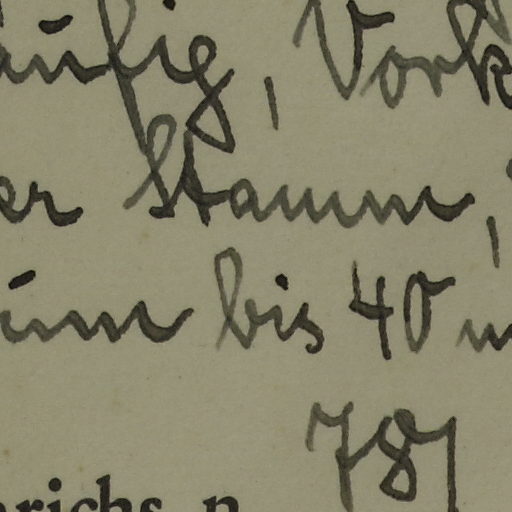 äufig, Vork
er Stamm,
um bis 40 m
78
richs n